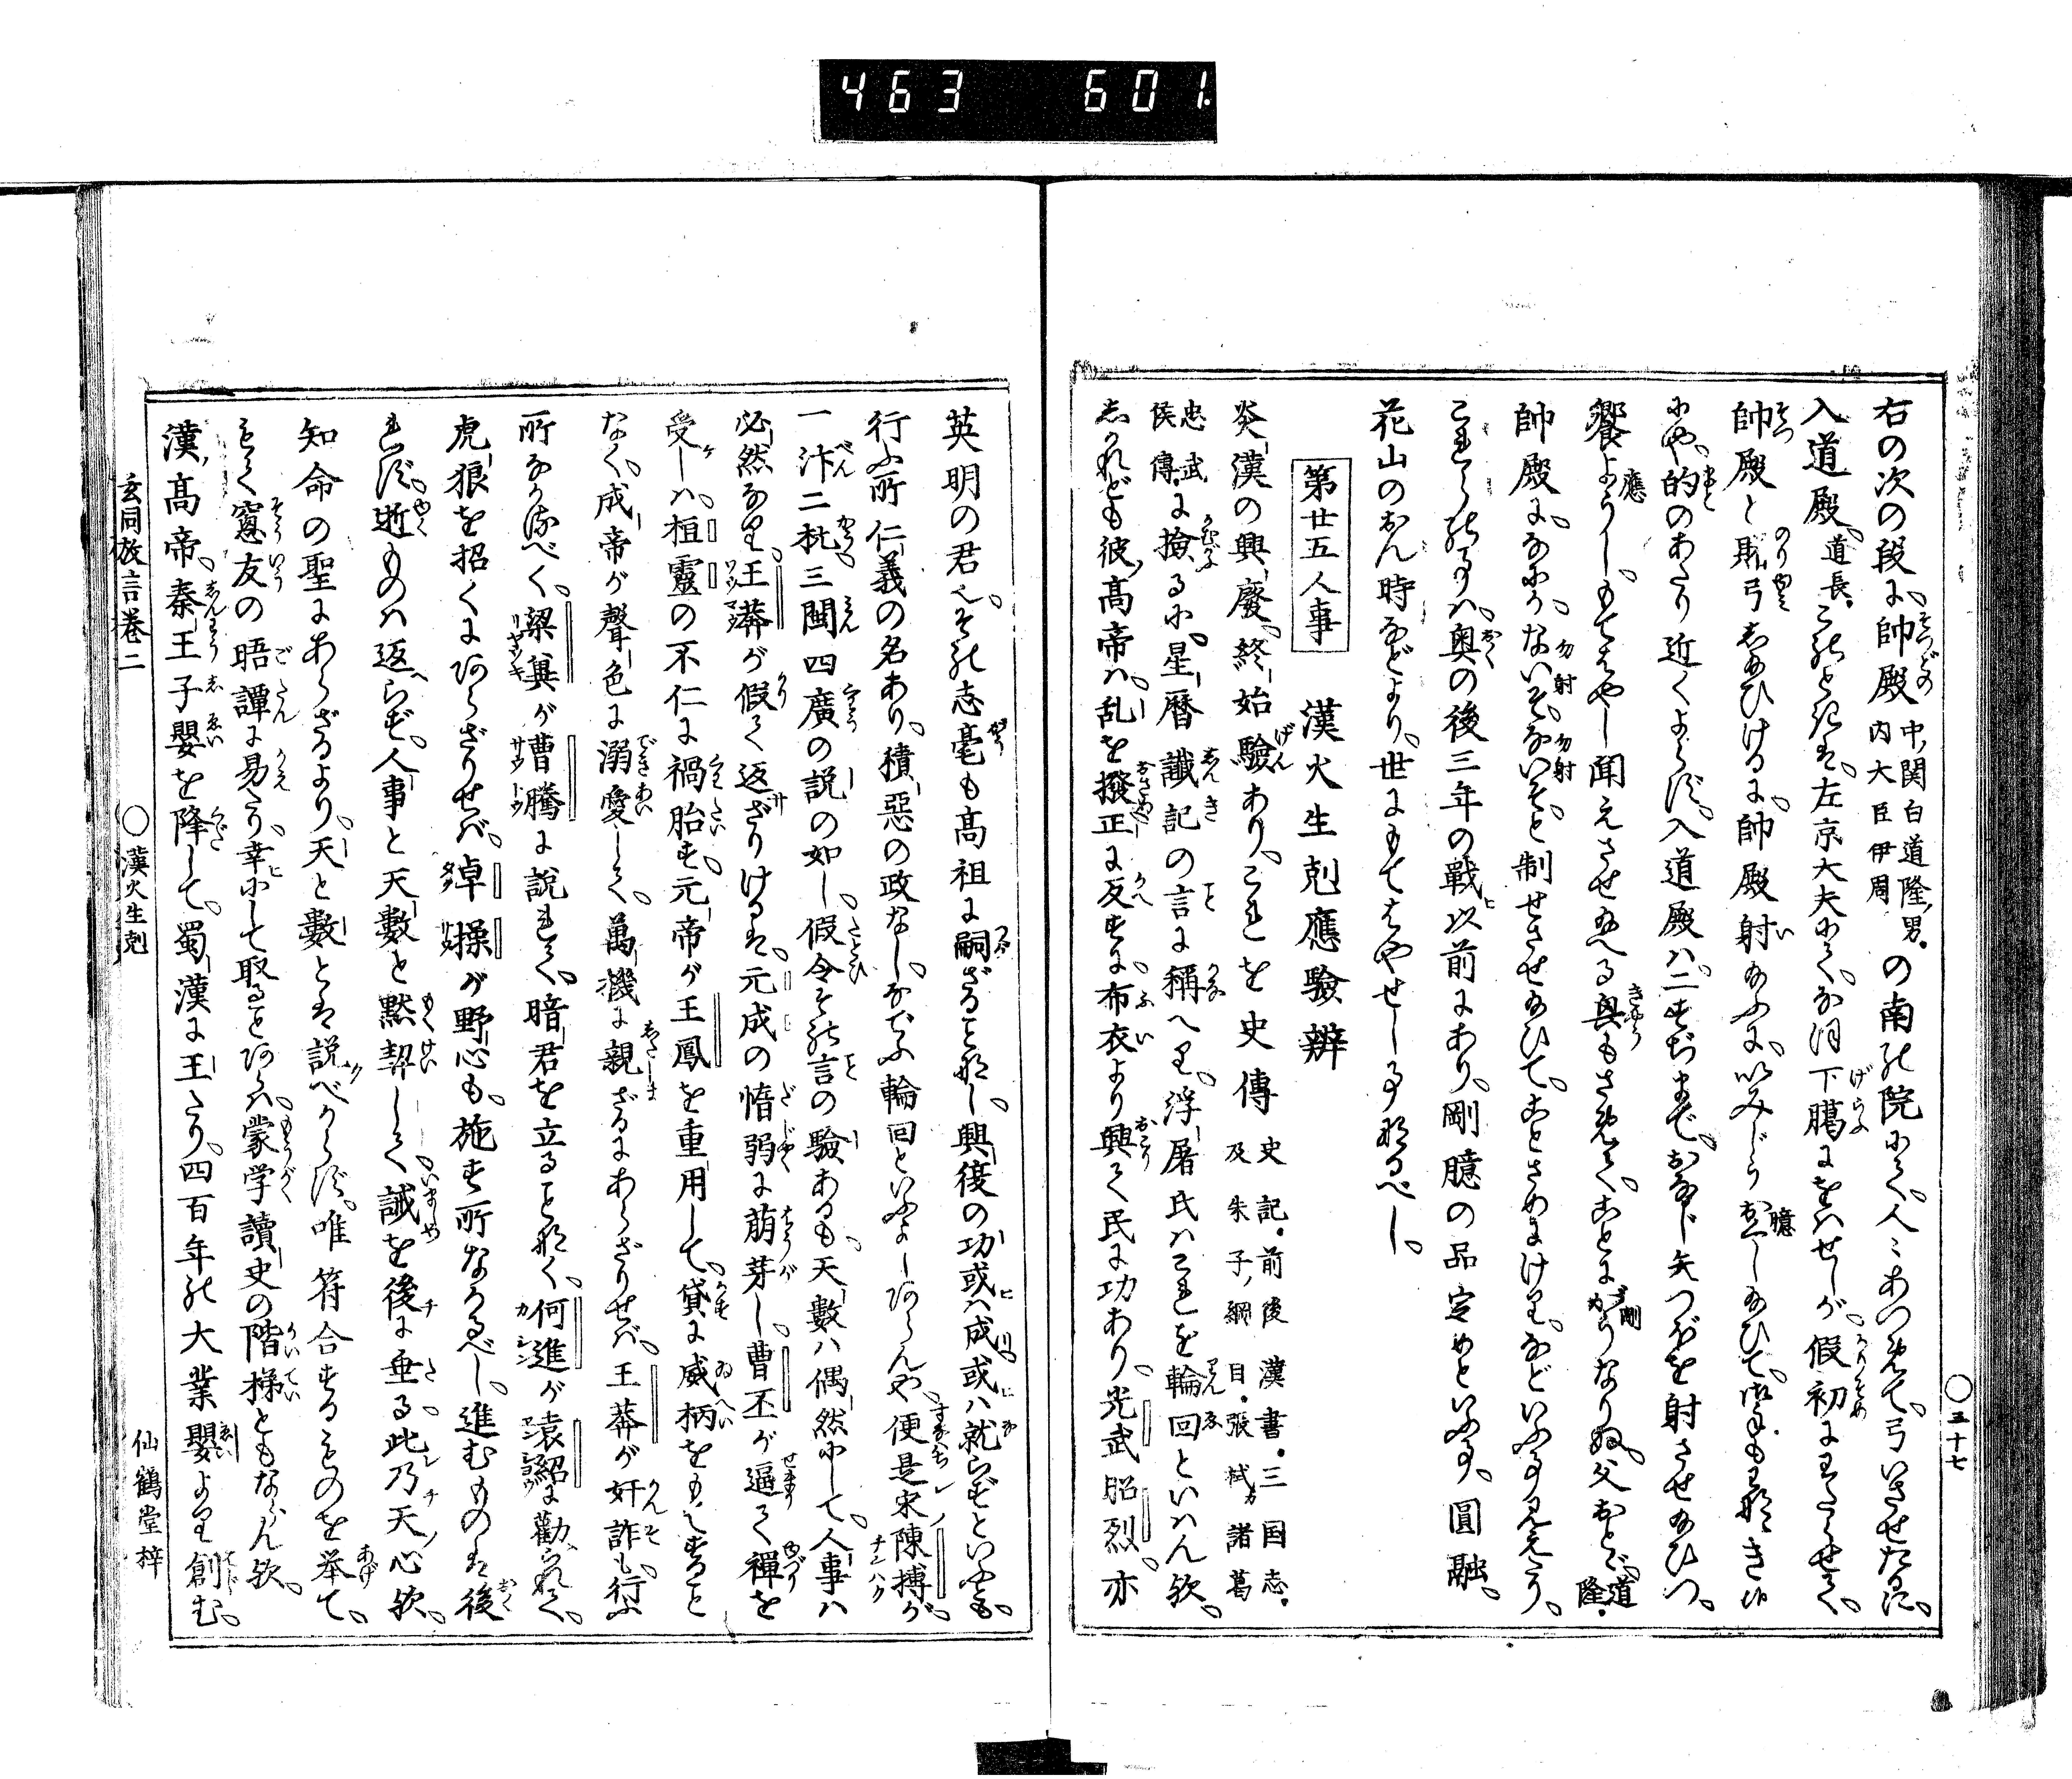 463 601
右の次の段に、帥殿中関白道隆ノ男。内大臣伊周の南の院にて、人々あつめて、弓いさせたまふに、
入道殿、道長。このときは、左京大夫にて、なほ下臈にをはせしが、假初にわたらせて、
帥殿と賭弓しあひけるに、帥殿射あふに、いみじう臆しあひて、
にや、的のあたり近くよらず、入道殿ハ、二すぢまで、おなじ矢つぼを射させあひつ。
饗應し、もてはやし聞えさせあへる興もさめて、ことにがうなりぬ。父おとど道隆。
帥殿に、なにか、ないそないそと制せさせあひて、ことさめにけり、などいふ事見えたり。
これらの事ハ、奥の後三年の戦以前にあり、剛臆の品定めといふ事、圓融、
花山のおん時などより、世にもてはやせし事なるべし。
第廿五人事 漢火生剋應驗辨
炎漢の興廢、終始驗あり、これを史傳史記。前後漢書。三国志。及朱子ノ綱目。張栻ガ諸葛
忠武侯傳に撿るに、星暦讖記の言に稱へり、浮屠氏ハこれを輪回といハん歟。
しかれども彼ノ高帝ハ、乱を撥正に反すに、布衣より興て民に功あり。光武昭烈、亦
英明の君也、その志毫も高祖に嗣ざることなし、興復の功或ハ成或ハ就らずといふとも、
行ふ所仁義の名あり、積惡の政なし、なぞふ輪回といふよしあらんや、便是宋ノ陳摶が、
一汴二杭三閩四廣の説の如し、假令その言の驗あるも、天數ハ偶然にして、人事ハ
必然なり、王莽が假て返ざりけるは、元成の惰弱に萌芽し、曹丕が逼て禪を
受しハ、桓靈の不仁に禍胎す、元帝が王鳳を重用して、貸に威柄をもてすること
なく、成帝が聲色に溺愛して、萬機に親ざるにあらざりせバ、王莽が奸詐も行ふ
所なかるべく、梁冀が曹騰に説れて、暗君を立ることなく、何進が袁紹に勸られて、
虎狼を招くにあらざりせバ、卓操が野心も、施す所なかるべし、進むものは後
れず、逝ものハ返らず、人事と天數と黙契して、誡を後に垂る、此乃天ノ心歟。
知命の聖にあらざるより、天と數とは説べからず、唯符合するものを挙て、
もて窓友の晤譚に易たり、幸にして取ることあらバ、蒙学讀史の階梯ともならん歟。
漢ノ高帝、秦王子嬰を降して、蜀漢に王たり、四百年の大業嬰より創む。
玄同放言巻二 ○漢火生剋 仙鶴堂梓
○三十七